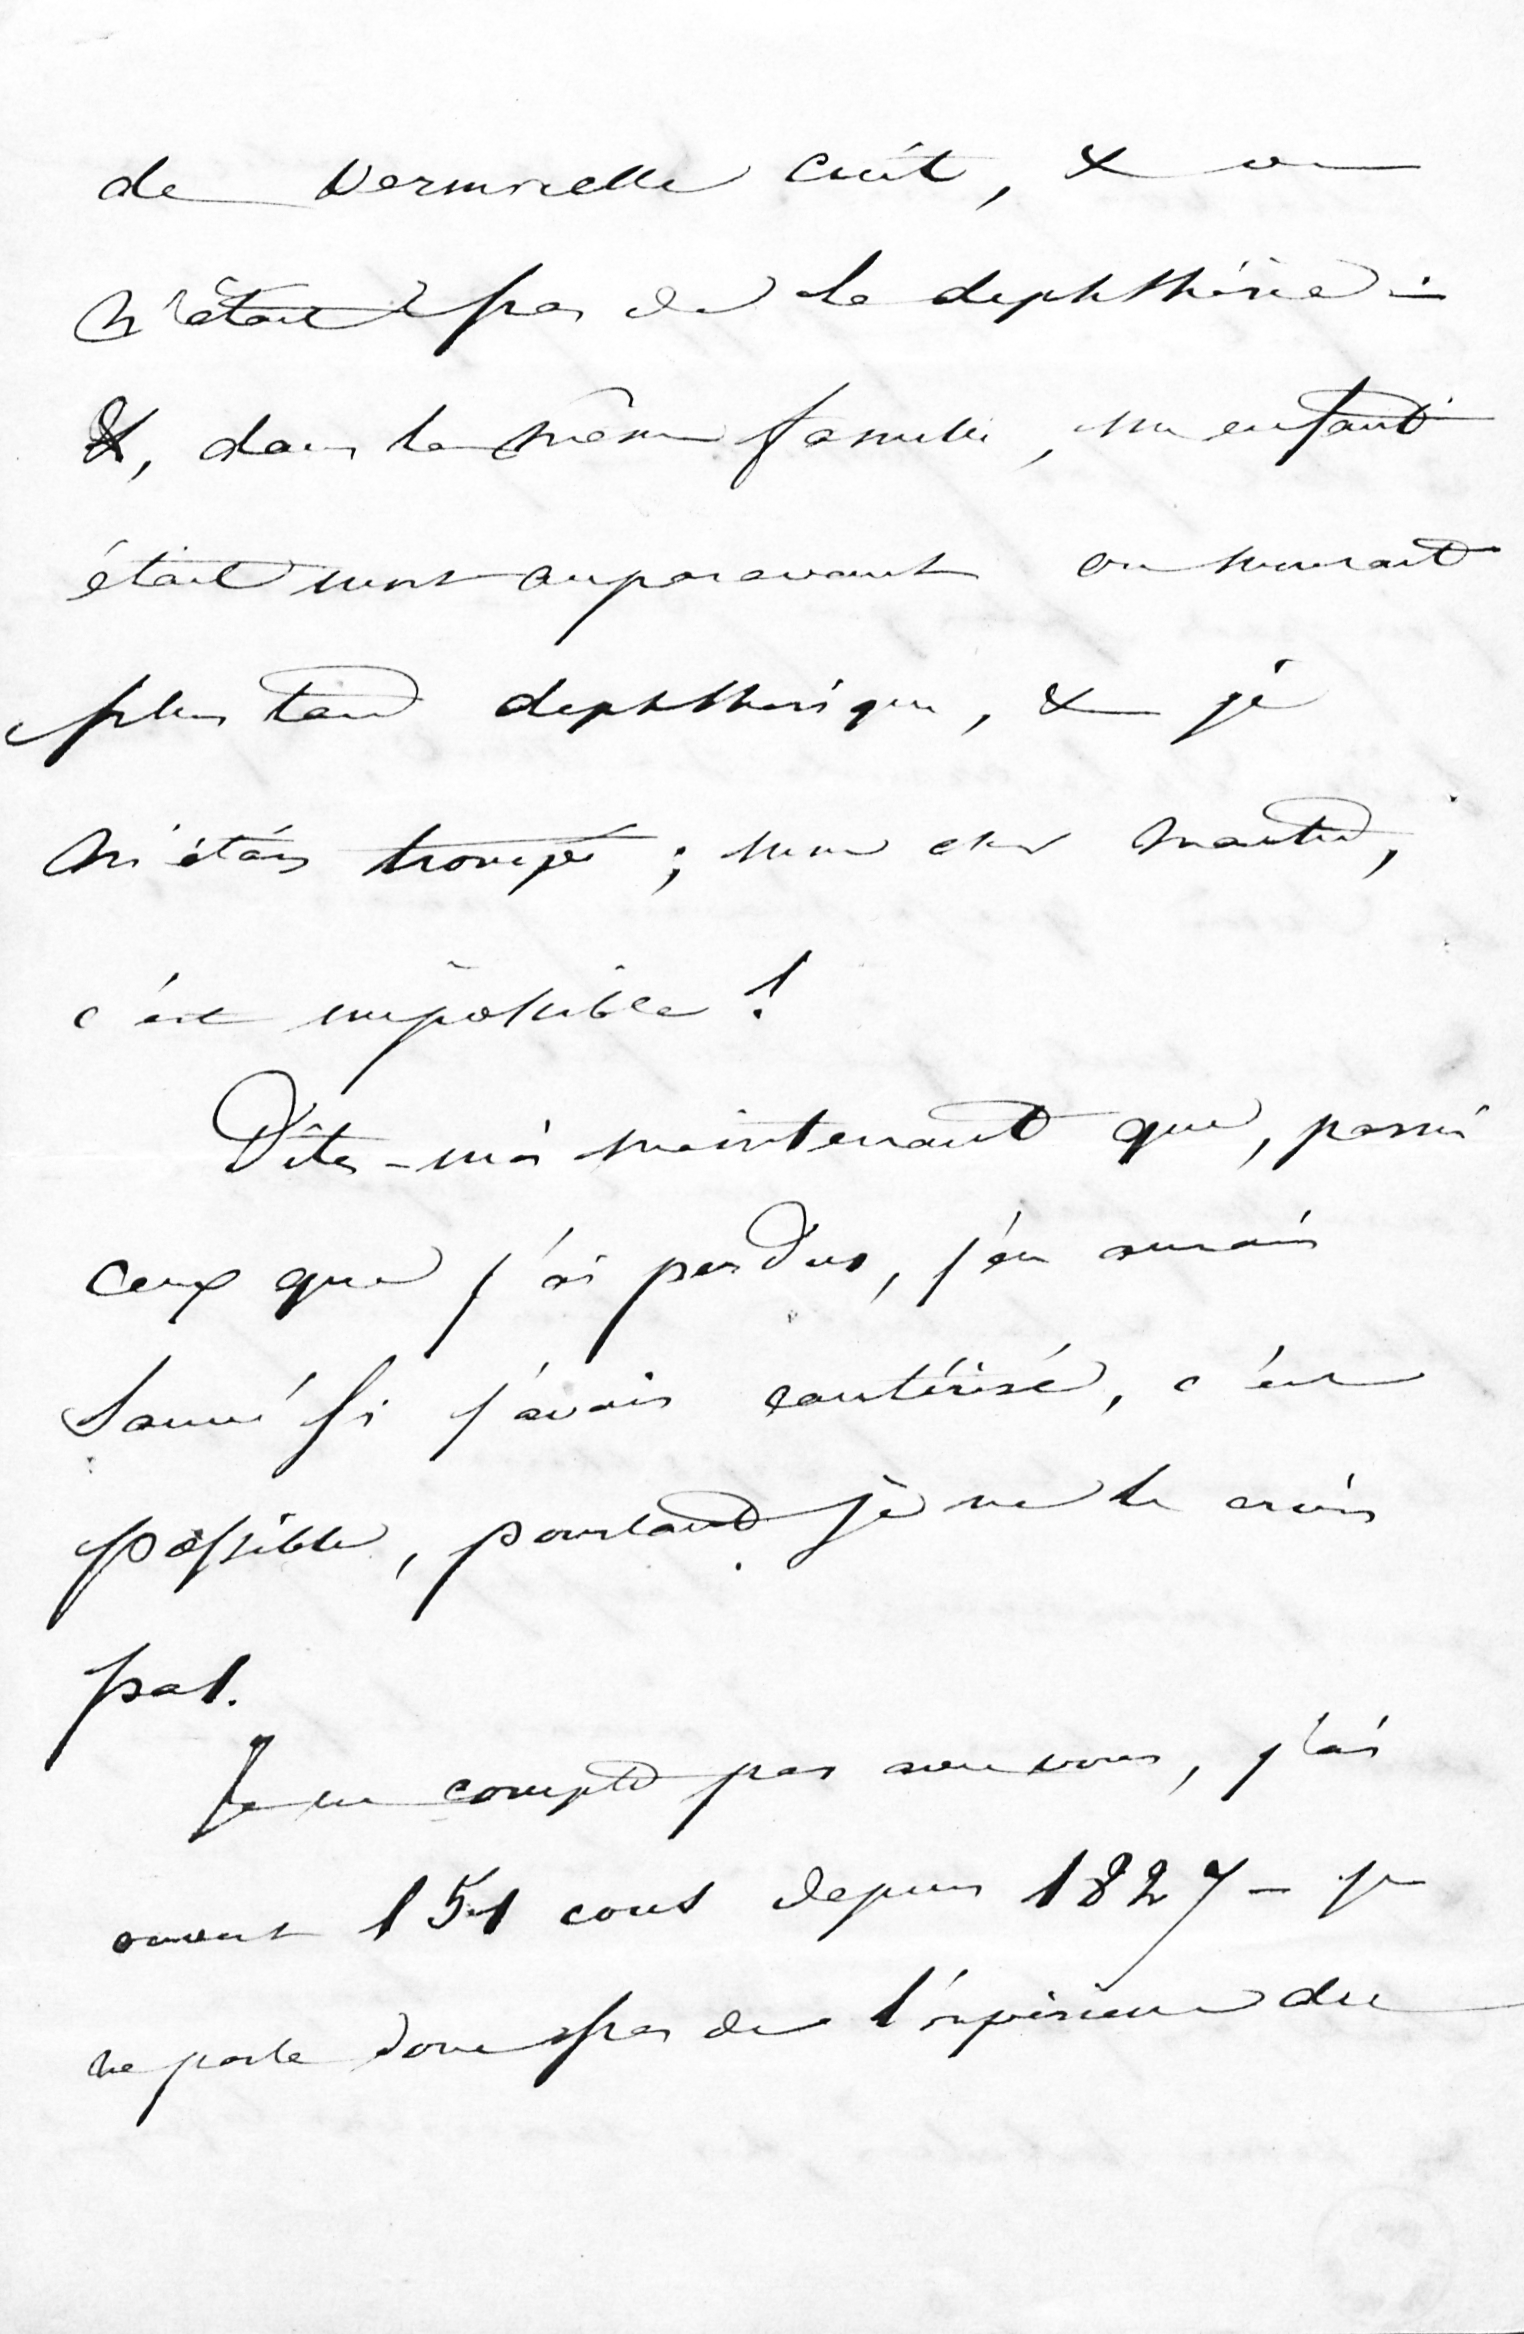 de vermicelle cuit, & ce
n'était pas de la diphthérie -
&, dans la même famille, un enfant
était mort auparavant ou mourait
plus tard diphthérique, & je
m'étais trompé ; mon cher maître,
c'est impossible !
Dîtes-moi maintenant que, parmi
ceux que j'ai perdus, j'en aurais
sauvé si j'avais cautérisé, c'est
possible, pourtant je ne le crois
pas.
Je ne compte pas avec vous, j'ai
ouvert 151 cous depuis 1827 - je
ne parle donc pas de l'expérience du